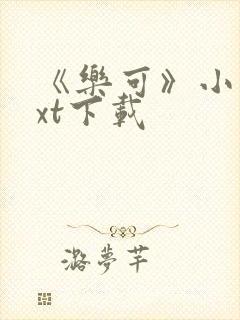 《樂可》小
xt下載
潞夢芊